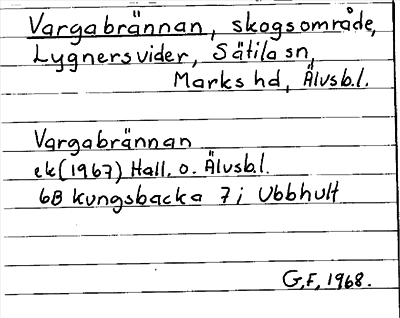 Vargabrännan, skogsområde,
Lygnersvider, Sätila sn,
Marks hd, Älvsb.l.
Vargabrännan
ek(1967) Hall. o. Älvsb.l.
6B Kungsbacka 7i Ubbhult
G.F, 1968.